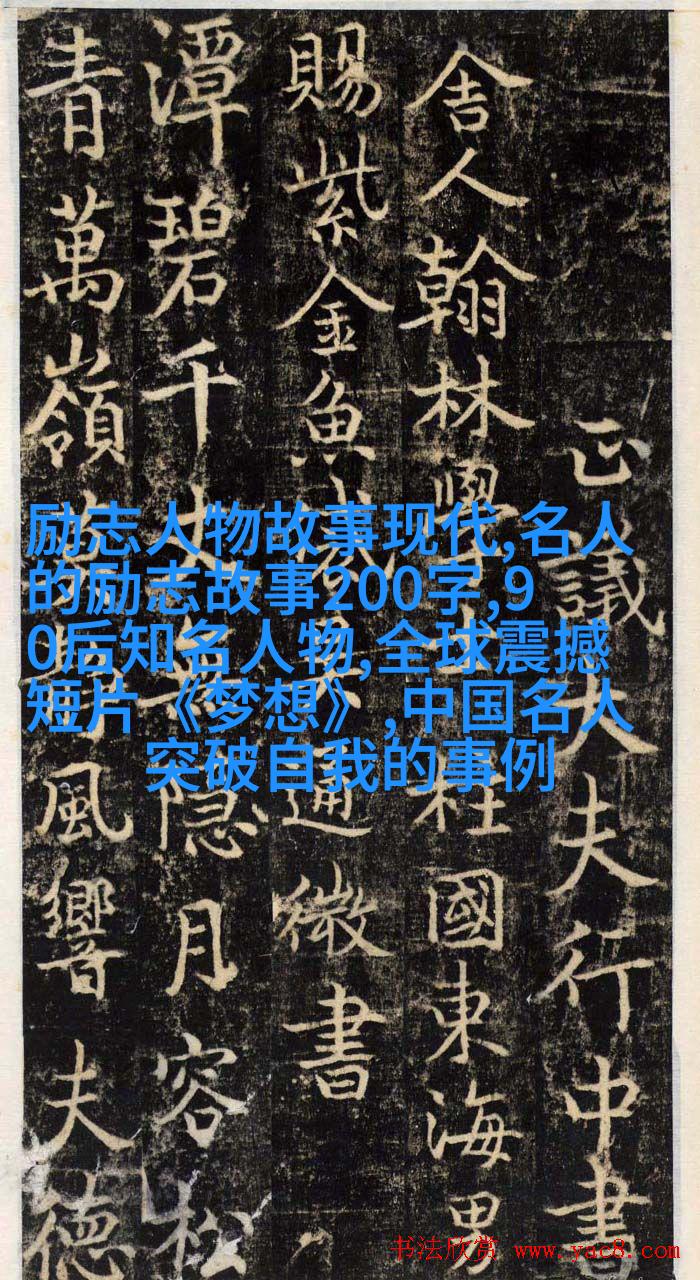 正議大夫行中書
舍人翰林學柱國東海男
賜紫金魚通微書
潭碧千丈隱月容松
青萬嶺風響夫德
励志人物故事现代,名人
的励志故事200字,9
0后知名人物,全球震撼
短片《梦想》,中国名人
突破自我的事例
书法欣赏 www.yac8.com